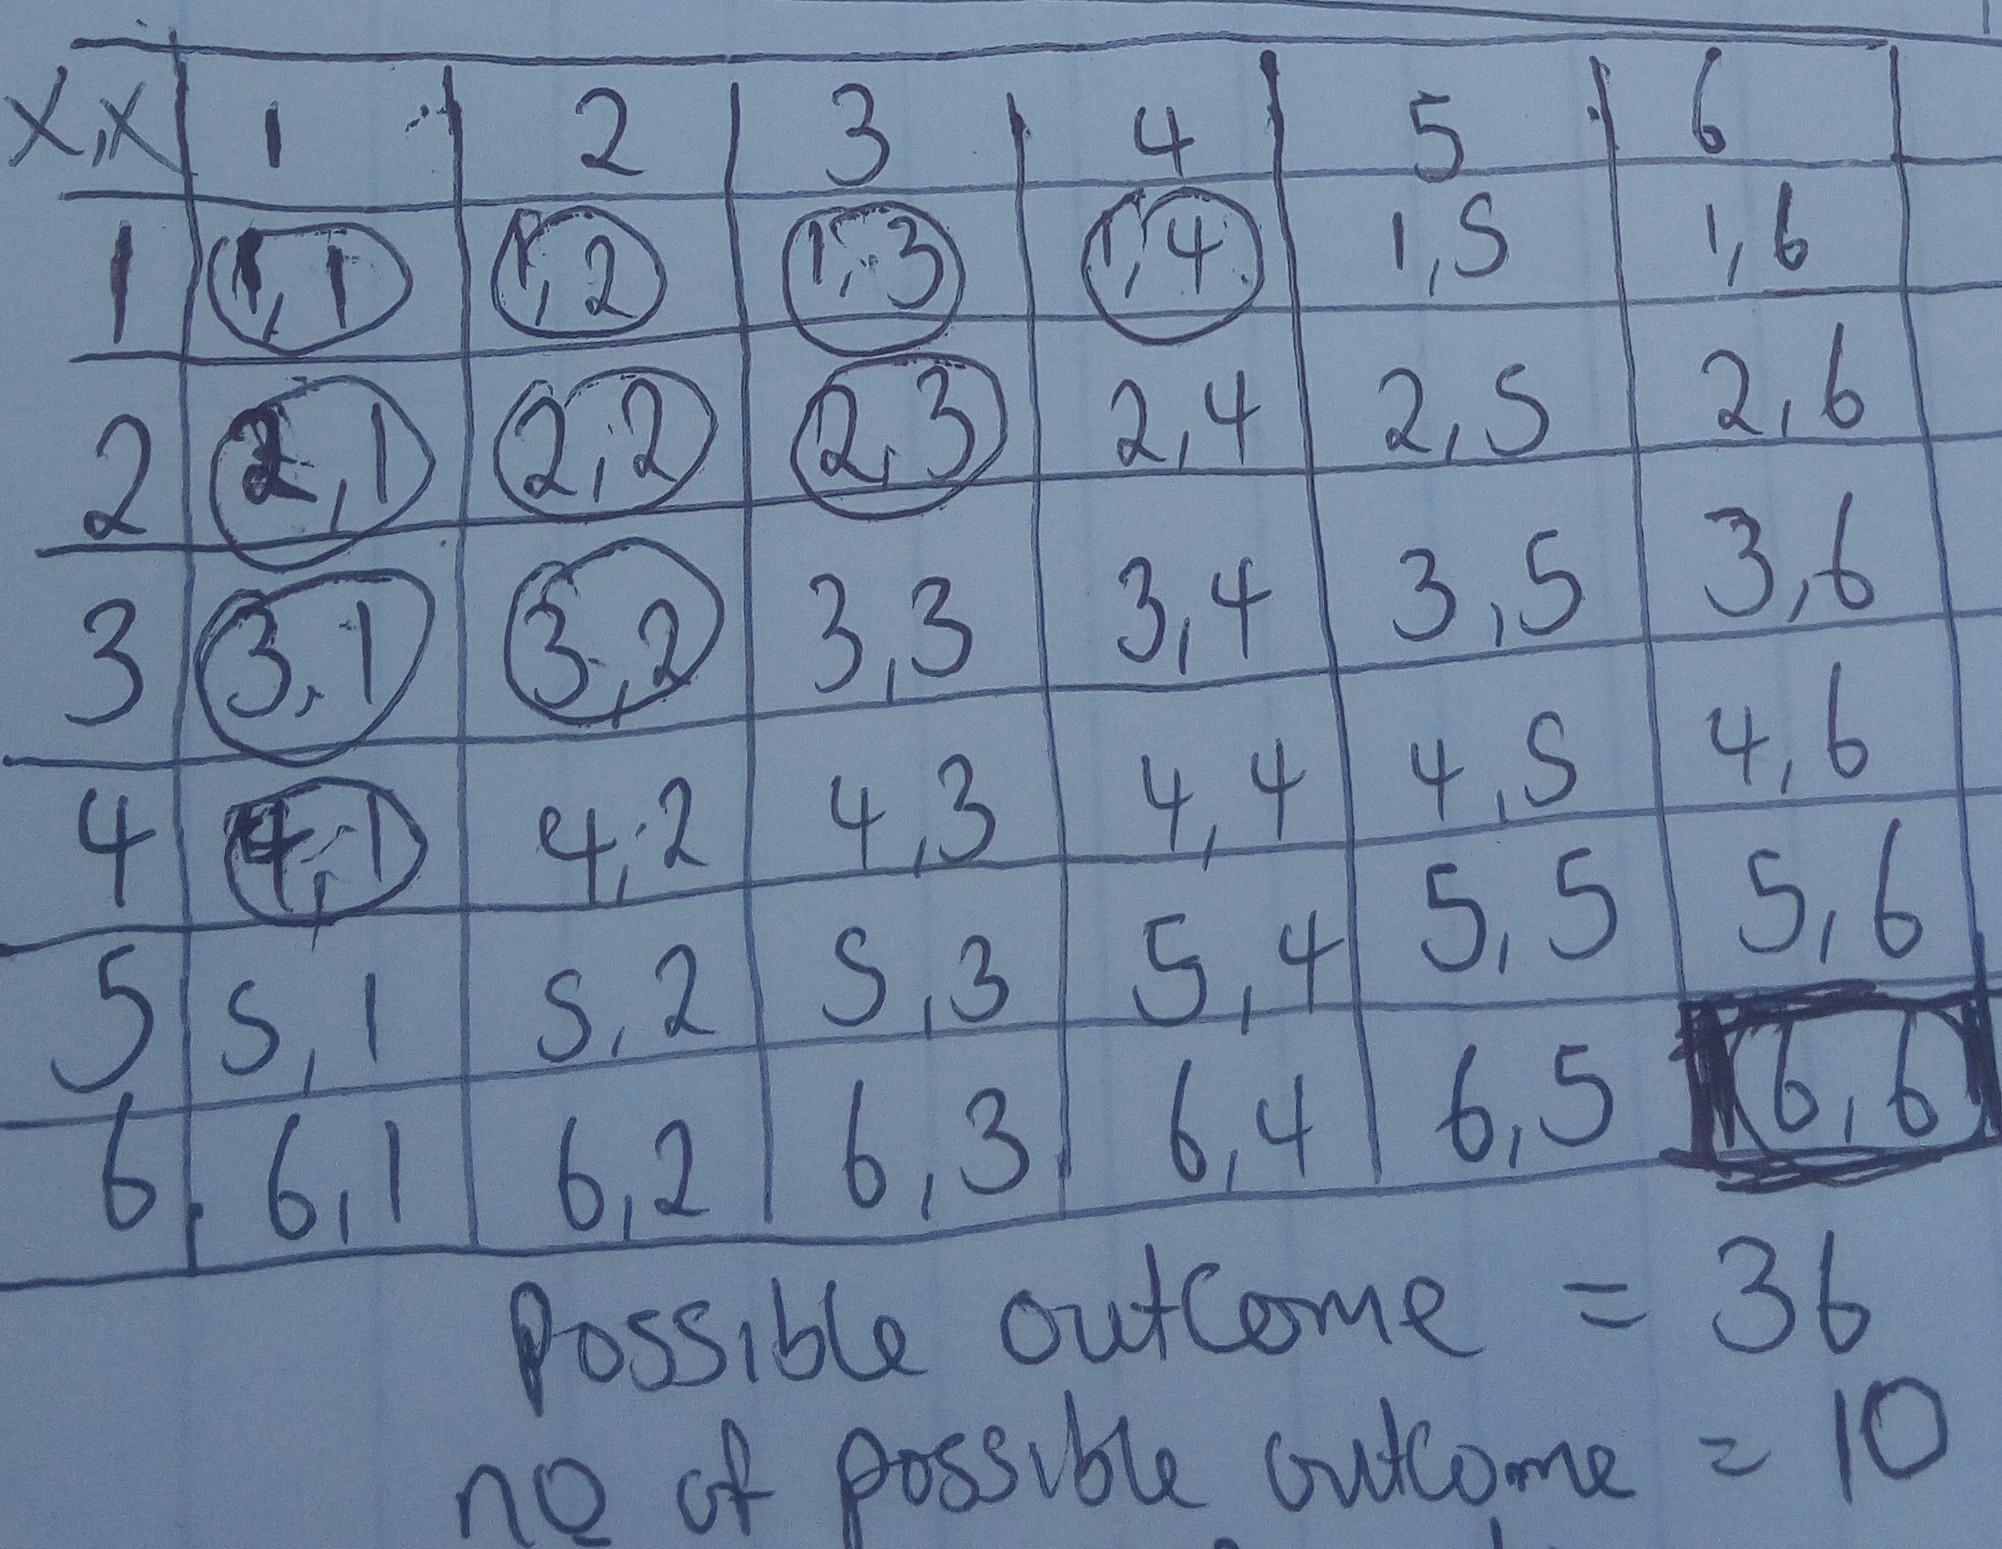 X,X 1 2 3 4 5 6
1 1,1 1,2 1,3 1,4 1,5 1,6
2 2,1 2,2 2,3 2,4 2,5 2,6
3 3,1 3,2 3,3 3,4 3,5 3,6
4 4,1 4,2 4,3 4,4 4,5 4,6
5 5,1 5,2 5,3 5,4 5,5 5,6
6 6,1 6,2 6,3 6,4 6,5 6,6
Possible outcome = 36
no of possible outcome = 10